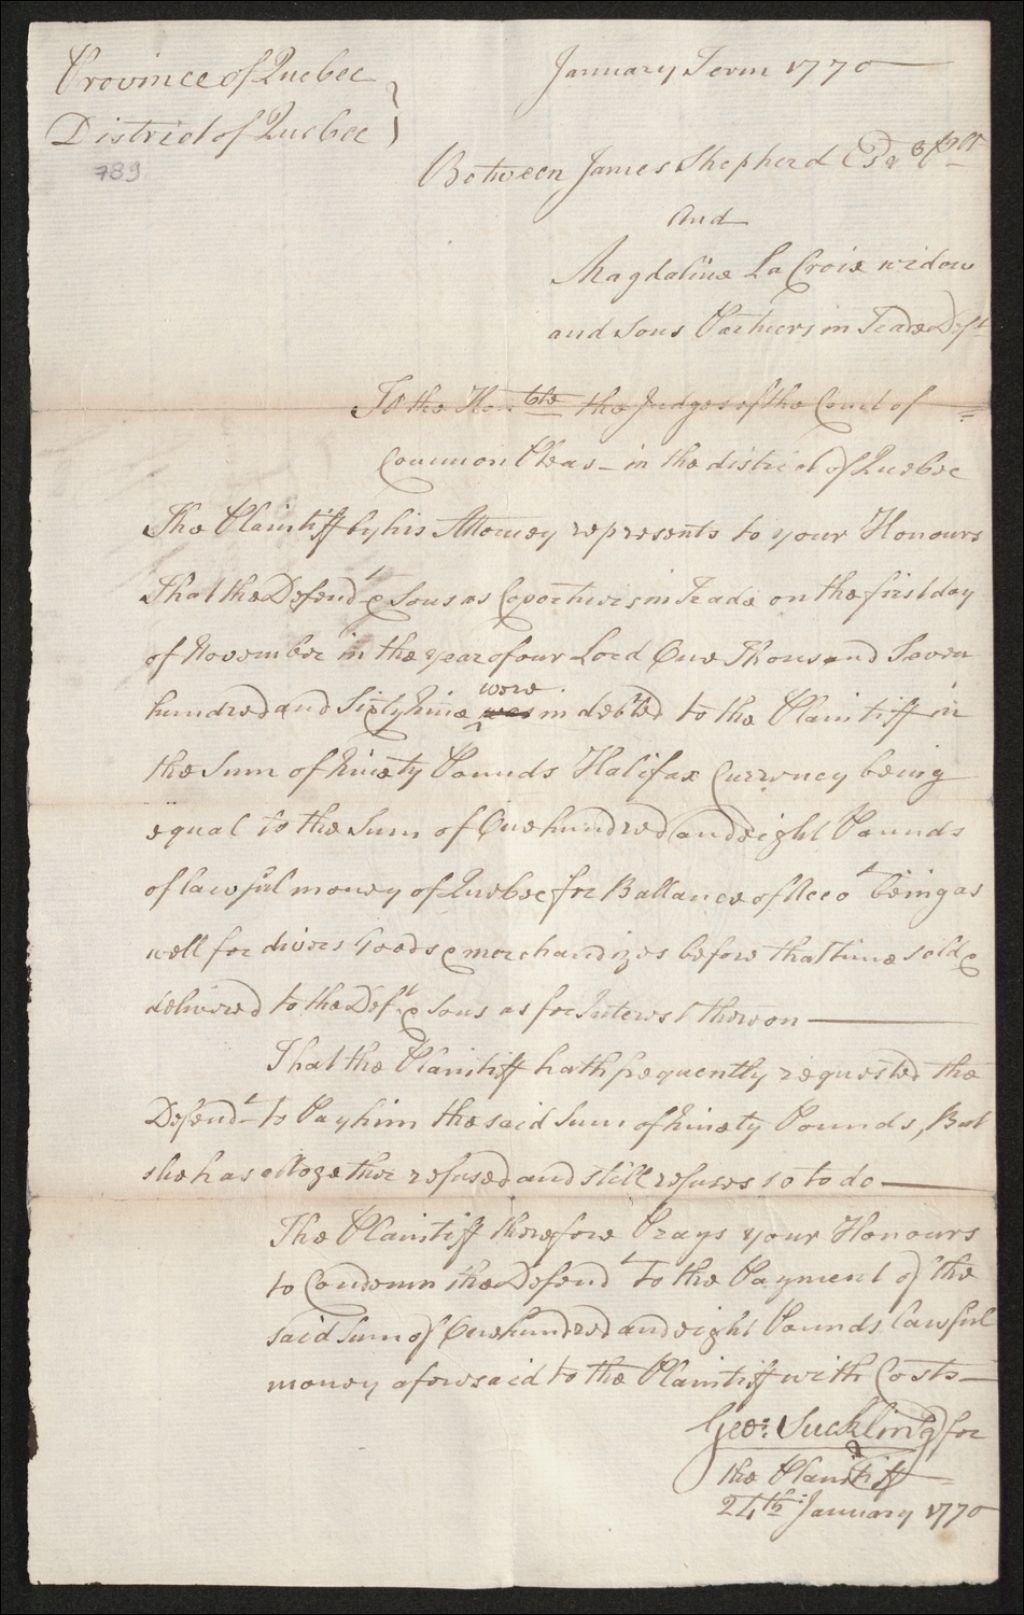 Province of Quebec
District of Quebec
789
January Term 1770
Between James Shepherd Esqr Plt
And
Magdaline La Croix widow
and Sons Partners in Trade Deft
To the Honble the Judges of the Court of
Common Pleas - in the district of Quebec
The Plaintiff by his Attorney represents to your Honours
That the Defendt & Sons as Copartners in Trade on the first day
of November in the year of our Lord One Thousand Seven
hundred and Sixty Nine were was indebted to the Plaintiff in
the Sum of Ninety Pounds Hallifax Currency being
equal to the Sum of One hundred and eight Pounds
of lawful money of Quebec for Ballance of Accot being as
well for divers Goods & merchandizes before that time sold &
delivered to the Deft & Sons as for Interest thereon
That the Plaintiff hath frequently requested the
Defendt to Pay him the said Sum of Ninety Pounds, But
she has altogether refused and still refuses so to do
The Plaintiff therefore Prays your Honours
to Condemn the Defendt to the Payment of the
said Sum of One hundred and eight Pounds lawful
money aforesaid to the Plaintiff with Costs
Geo: Suckling for
the Plaintiff
24th January 1770